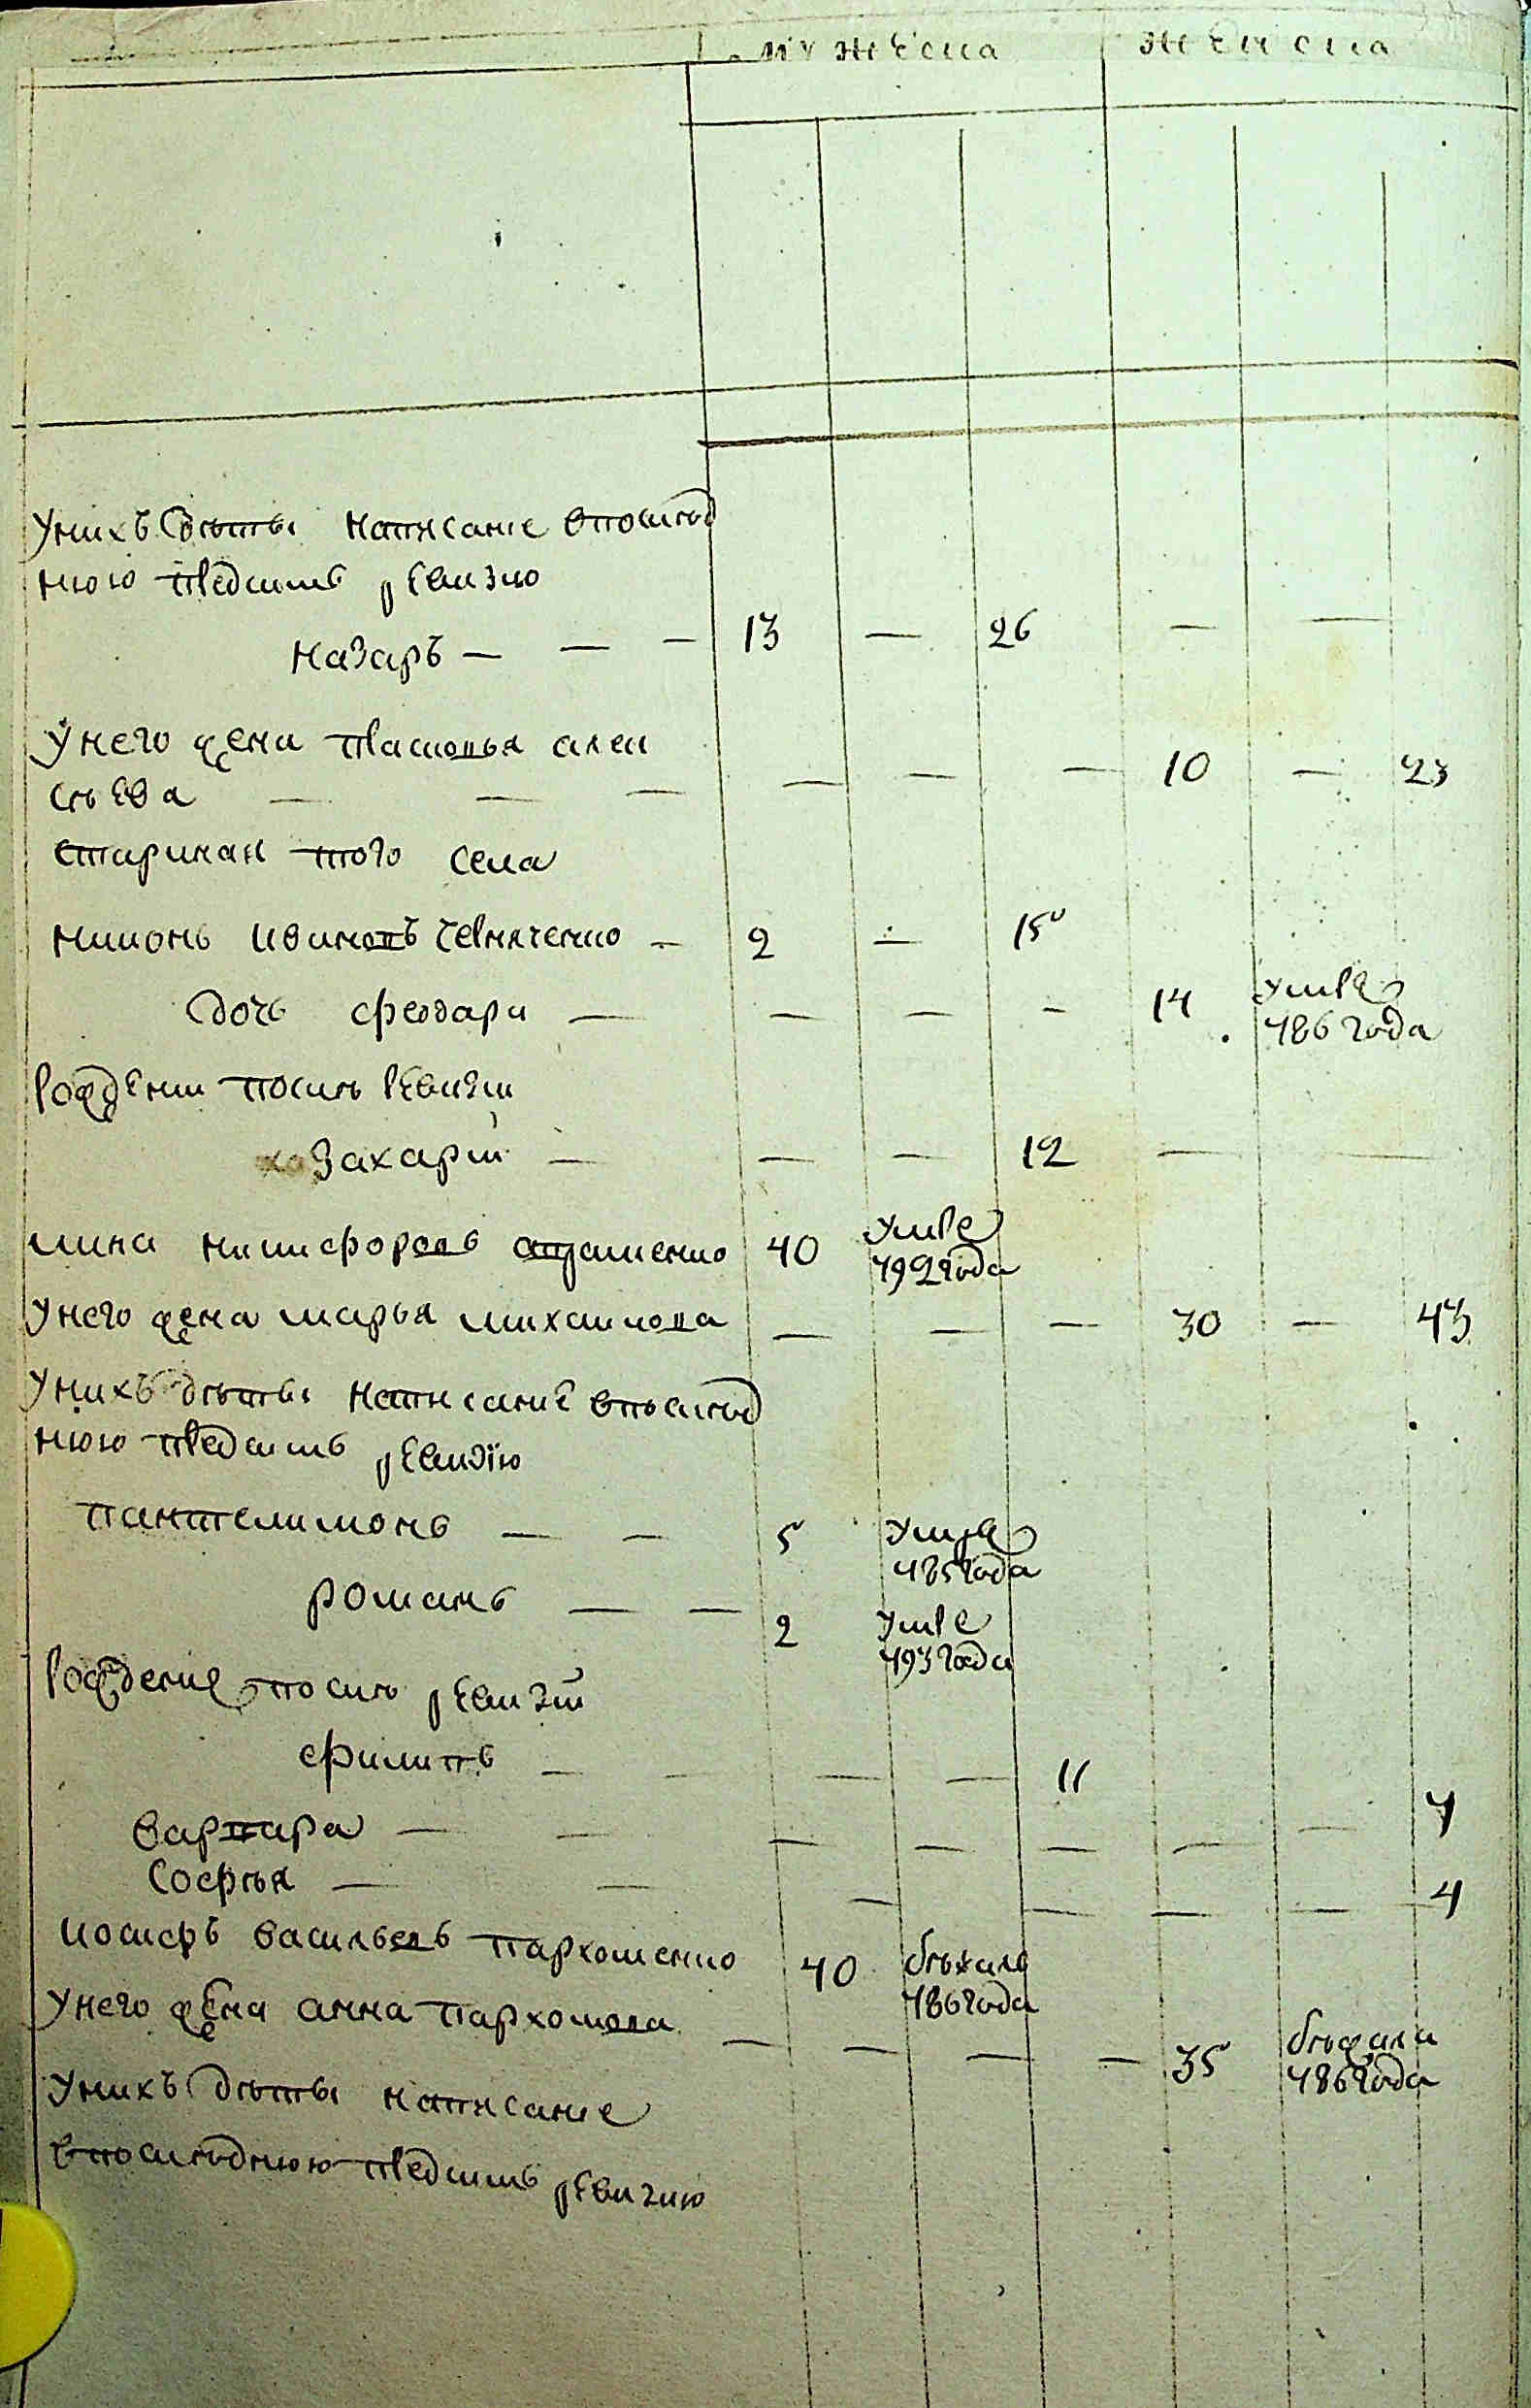 мужеска женска
У нихъ дѣти написание в послѣд
нюю пред симъ ревизию
Назаръ — — — 13 — 26 — —
У него жена Прасковья Алек
сѣева — — — — — — 10 — 23
того села
Иванов 2 — 15
дочь Феодара — — — — 14 умре
786 года
Рождении послѣ ревизии
Захарий — — — 12 — —
Мина Никифоровъ 40 умре
792 года
У него жена Марья Михаилова — — — 30 — 43
У нихъ дѣти написание в послѣд
нюю пред симъ ревизию
Пантелимонъ — — 5 умре
785 года
Романъ — — 2 умре
793 года
Рождение послѣ ревизии
Филипъ — — — — 11
Варвара — — — — — — — 7
Софѣя — — — — — — 4
Иосифъ Васильевъ Пархоменко 40 бѣжалъ
786 года
У него жена Анна Пархомова — — — — 35 бѣжала
786 года
У нихъ дѣти написание
в послѣднюю пред симъ ревизию